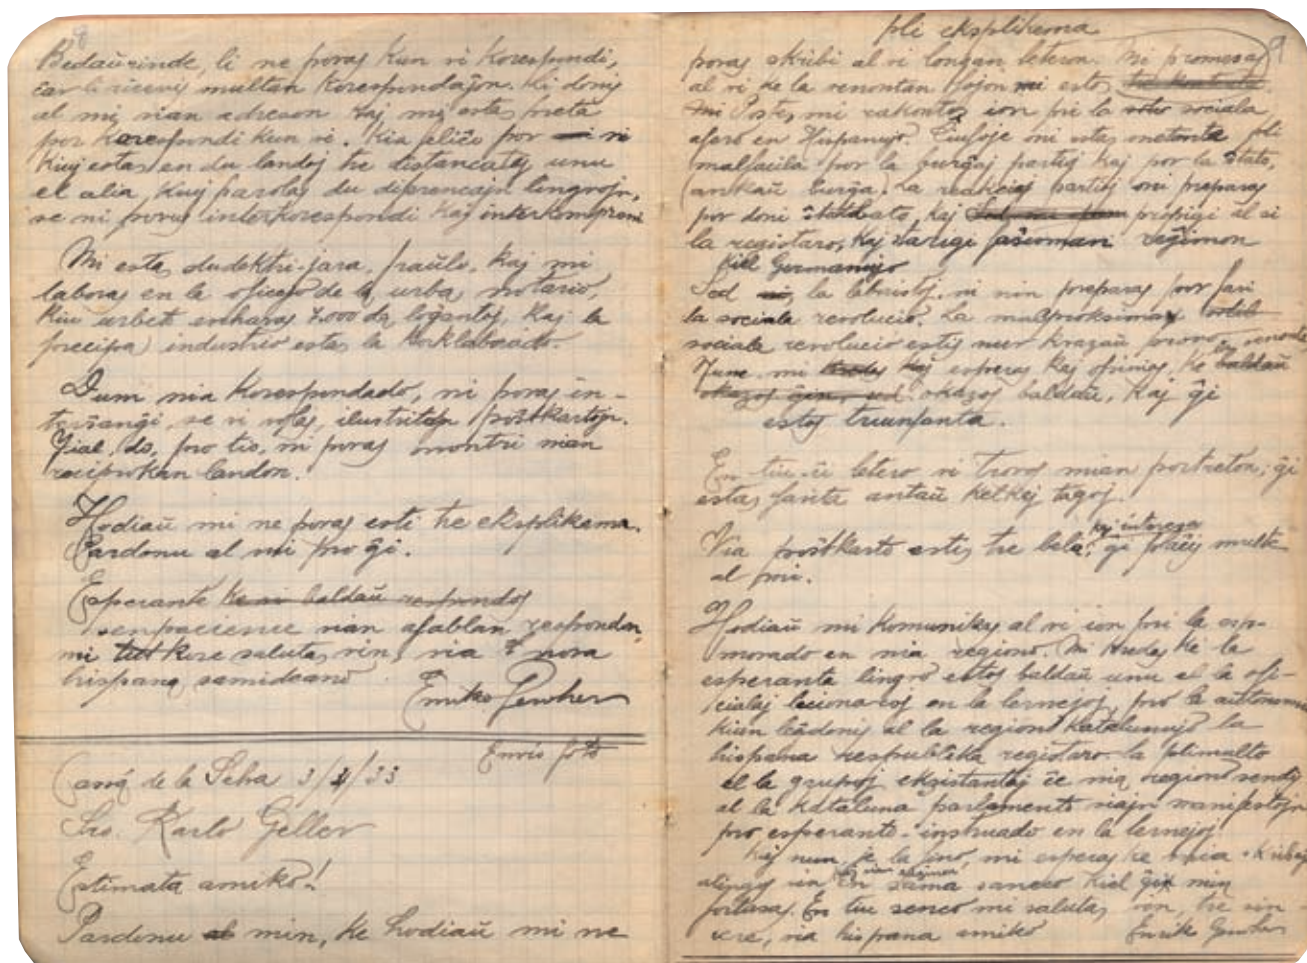 8
Bedaŭrinde, li ne povas kun vi korespondi,
ĉar li ricevis multan korespondaĵon. Li donis
al mi vian adreson kaj mi estas preta
por korespondi kun vi. Kia feliĉo por ni
kiuj estas en du landoj tre distancataj unu
el alia, kiuj parolas du diferencajn lingvojn,
se ni povus interkorespondi kaj interkompreni
Mi estas dudektri-jara, fraŭlo, kaj mi
laboras en la oficejo de la urba notario,
kiu urbeto enhavas 7.000 da loĝantoj, kaj la
precipa industrio estas la korklaborado.
Dum nia korespondado, ni povas in-
terŝanĝi, se vi volas, ilustritajn poŝtkartojn.
Tial, do, pro tio, ni povas montri nian
reciprokan landon.
Hodiaŭ mi ne povas esti tre eksplikema.
Pardonu al mi pro ĝi.
Esperante ke ni baldaŭ respondos
senpacience vian afablan respondon,
mi tut kore salutas vin, via nova
hispana samideano
Enriko
Envis foto
Cassá de la Selva 3/2/33
Sro. Karlo Geller
Estimata amiko!
Pardonu al min, ke hodiaŭ mi ne
pli eksplikema
9
povas skribi al vi longan leteron. Mi promesas
al vi ke la venontan fojon mi estos
mi. Poste, mi rakontos ion pri la sociala
afero en Hispanujo. Ĉiufoje ni estas pli
malfacila por la burĝaj partioj kaj por la ŝtato,
ankaŭ burĝa. La reakciaj partioj sin preparas
por doni ŝtatbaton, kaj proprigi al si
la registaro, kaj starigi faŝisman reĝimon
kiel Germanujo
Sed la laboristoj, ni nin preparas por fari
la socialan revolucio. La malproksima
sociala revolucio estis nur
June. mi kredas kaj esperas kaj opinias, ke baldaŭ
okazos ĝin, sed okazos baldaŭ, kaj ĝi
estos triunfanta.
En tiu-ĉi letero vi trovos mian portreton; ĝi
estas farita antaŭ kelkaj tagoj.
kaj interesa
Via poŝtkarto estis tre bela; ĝi plaĉis multe
al mi.
Hodiaŭ mi komunikas al vi ion pri la esp-
movado en nia regiono. Mi kredas ke la
esperanta lingvo estos baldaŭ unu el la ofi-
cialaj lecionaroj en la lernejoj, pro la aŭtonomio
kiun donis al la regiono Katalunujo la
hispana respublika registaro. la plimulto
el la grupoj ekzistantaj ĉe nia regiono sendis
al la kataluna parlamento siajn manifestojn
pro esperanto-instruado en la lernejoj.
Kaj nun, je la fino, mi esperas ke mia skribaĵo
atingos vin en sama saneco kiel ĝi min
forlasas. En tiu senco mi salutas vin, tre sin-
cere, via hispana amiko Enriko